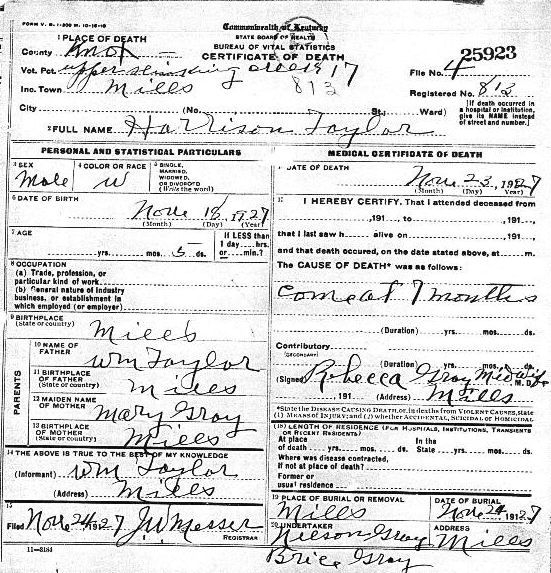 FORM V. S. 1-300 M. 10-16-16
Commonwealth of Kentucky
STATE BOARD OF HEALTH
BUREAU OF VITAL STATISTICS
CERTIFICATE OF DEATH
1 PLACE OF DEATH
County Knox
Vot. Pct. upper 17
Inc. Town Mills 813
City (No. St.; Ward)
File No. 4 25923
Registered No. 813
[If death occurred in a hospital or institution, give its NAME instead of street and number.]
2 FULL NAME Harrison Taylor
PERSONAL AND STATISTICAL PARTICULARS
3 SEX
Male
4 COLOR OR RACE
W
5 SINGLE, MARRIED, WIDOWED OR DIVORCED
(Write the word)
6 DATE OF BIRTH
Nov 18 1927
(Month) (Day) (Year)
7 AGE
yrs. mos. 5 ds.
If LESS than 1 day hrs. or min.?
8 OCCUPATION
(a) Trade, profession, or particular kind of work
(b) General nature of industry business, or establishment in which employed (or employer)
9 BIRTHPLACE
(State or country) Mills
PARENTS
10 NAME OF FATHER Wm Taylor
11 BIRTHPLACE OF FATHER
(State or country) Mills
12 MAIDEN NAME OF MOTHER Mary Gray
13 BIRTHPLACE OF MOTHER
(State or country) Mills
14 THE ABOVE IS TRUE TO THE BEST OF MY KNOWLEDGE
(Informant) Wm Taylor
(Address) Mills
15
Filed Nov 24 1927 J W Messer
REGISTRAR
11-3184
MEDICAL CERTIFICATE OF DEATH
DATE OF DEATH
Nov 23 1927
(Month) (Day) (Year)
17 I HEREBY CERTIFY, That I attended deceased from
, 191 , to , 191 ,
that I last saw h alive on , 191 ,
and that death occured, on the date stated above, at m.
The CAUSE OF DEATH* was as follows:
Come at 7 months
(Duration) yrs. mos. ds.
Contributory
(SECONDARY)
(Duration) yrs. mos. ds.
(Signed) Rebecca Gray Midwife M. D.
191 (Address) Mills
*State the DISEASE CAUSING DEATH, or, in deaths from VIOLENT CAUSES, state (1) MEANS OF INJURY; and (2) whether ACCIDENTAL, SUICIDAL or HOMICIDAL
(18) LENGTH OF RESIDENCE (FOR HOSPITALS, INSTITUTIONS, TRANSIENTS OR RECENT RESIDENTS)
At place of death yrs. mos. ds. In the State yrs. mos. ds.
Where was disease contracted,
If not at place of death?
Former or usual residence
19 PLACE OF BURIAL OR REMOVAL
Mills
DATE OF BURIAL
Nov 24 1927
20 UNDERTAKER
Nelson Gray
Brice Gray
ADDRESS
Mills